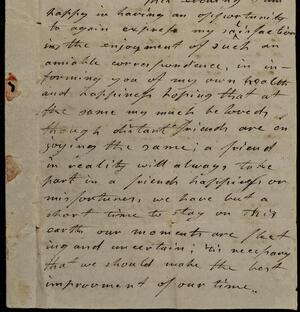 this evening I am
happy in having an oppertunity
to again express my satisfaction
in the enjoyment of such an
amiable correspondence, in in-
forming you of my own health
and happiness hoping that at
the same my much beloved
though distant friends are en
joying the same; a friend
in reality will always take
part in a friends happiness or
misfortunes, we have but a
short time to stay on this
earth our moments are fleet
ing and uncertain; 'tis necessary
that we should make the best
improvment of our time..